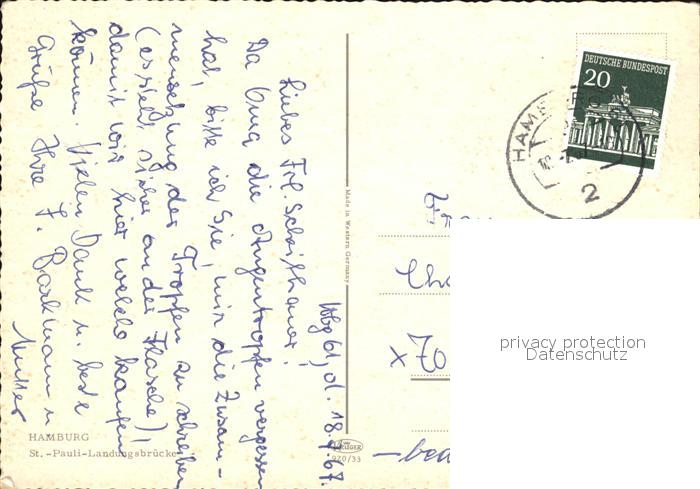 Hbg 61, d. 18.9.67.
Liebes Frl. Scheithauer!
Da Oma die Augentropfen vergessen
hat, bitte ich Sie, mir die Zusam-
mensetzung der Tropfen zu schreiben
(es steht sicher an der Flasche)!
damit wir hier welche kaufen
können. Vielen Dank u. beste
Grüße Ihre J. Barkmann u
Mutter
HAMBURG
St.-Pauli-Landungsbrücke
Made in Western Germany
KRÜGER
920/33
DEUTSCHE BUNDESPOST
20
HAMBURG
2
x 70
privacy protection
Datenschutz